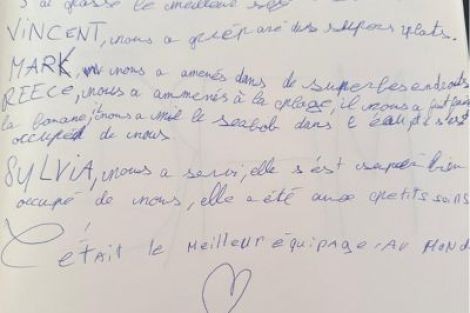 J'ai passé le meilleur
VINCENT, nous a préparé des supers plats.
MARK, nous a amenés dans de superbes endroits
REECE, nous a ammenés à la plage, il nous a fait faire
la banane, nous a mit le seabob dans l'eau, s'est
occupé de nous
SYLVIA, nous a servi, elle s'est super bien
occupé de nous, elle a été aux petits soins
C'ÉTAIT le MeilleUr équipage AU MOND